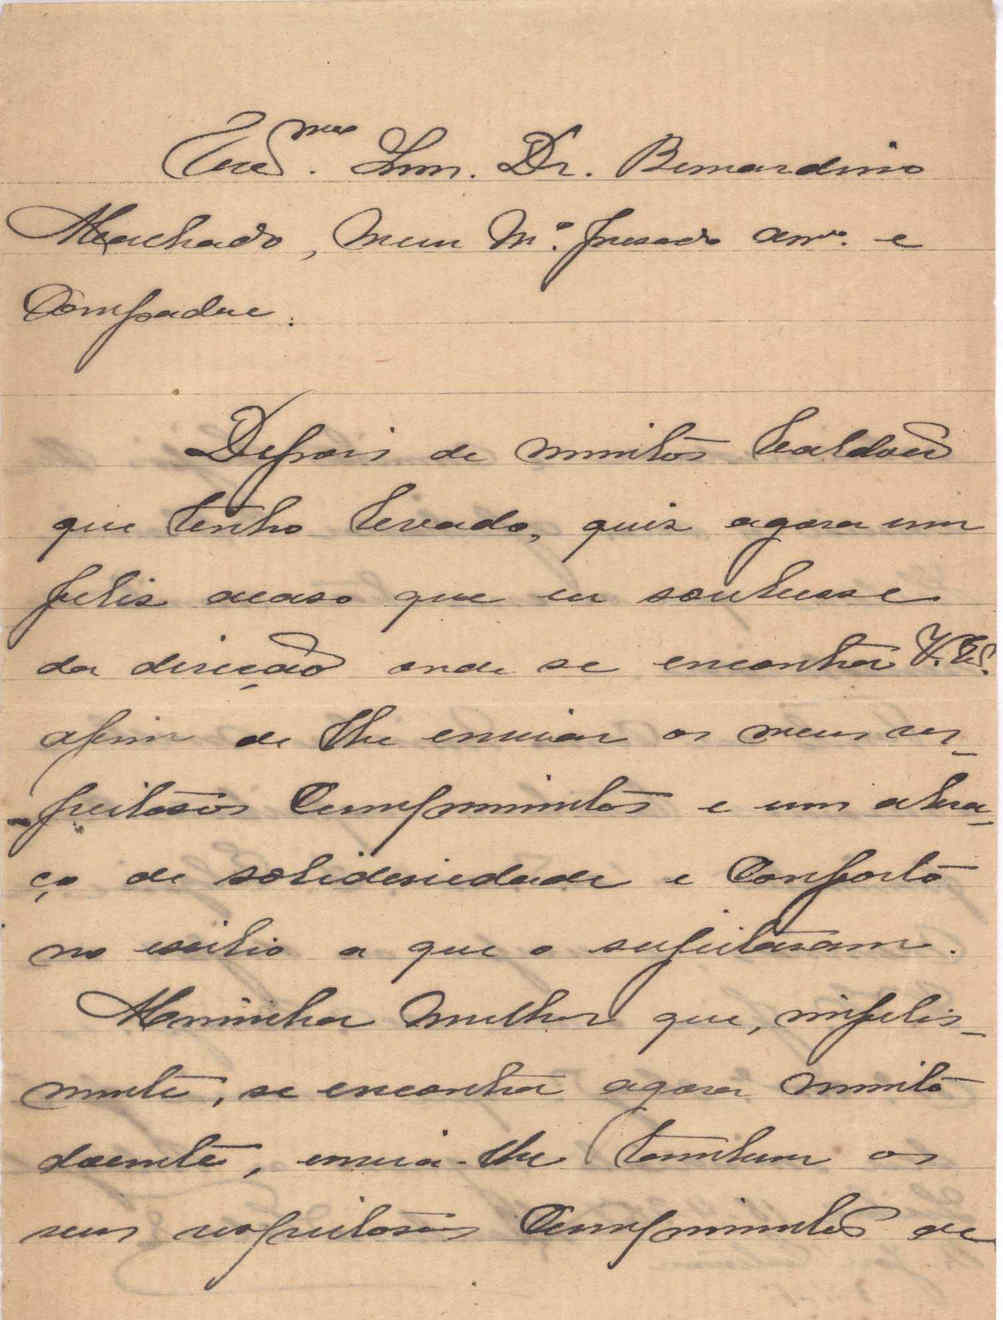 Exmo. Snr. Dr. Bernardino
Machado, Meu Mo. presado amo. e
Compadre.
Depois de muitos
que tenho levado, quiz agora um
felis acaso que eu soubesse
da direção onde se encontra V. Ex.
afim de lhe enviar os meus res-
peitosos Comprimentos e um abra-
ço de solideriedade e Conforto
no exilio a que o sugeitaram.
Maminha Mulher que, infelis-
mente, se encontra agora muito
doente, envia-lhe tambem os
seus respeitosos Comprimentos de